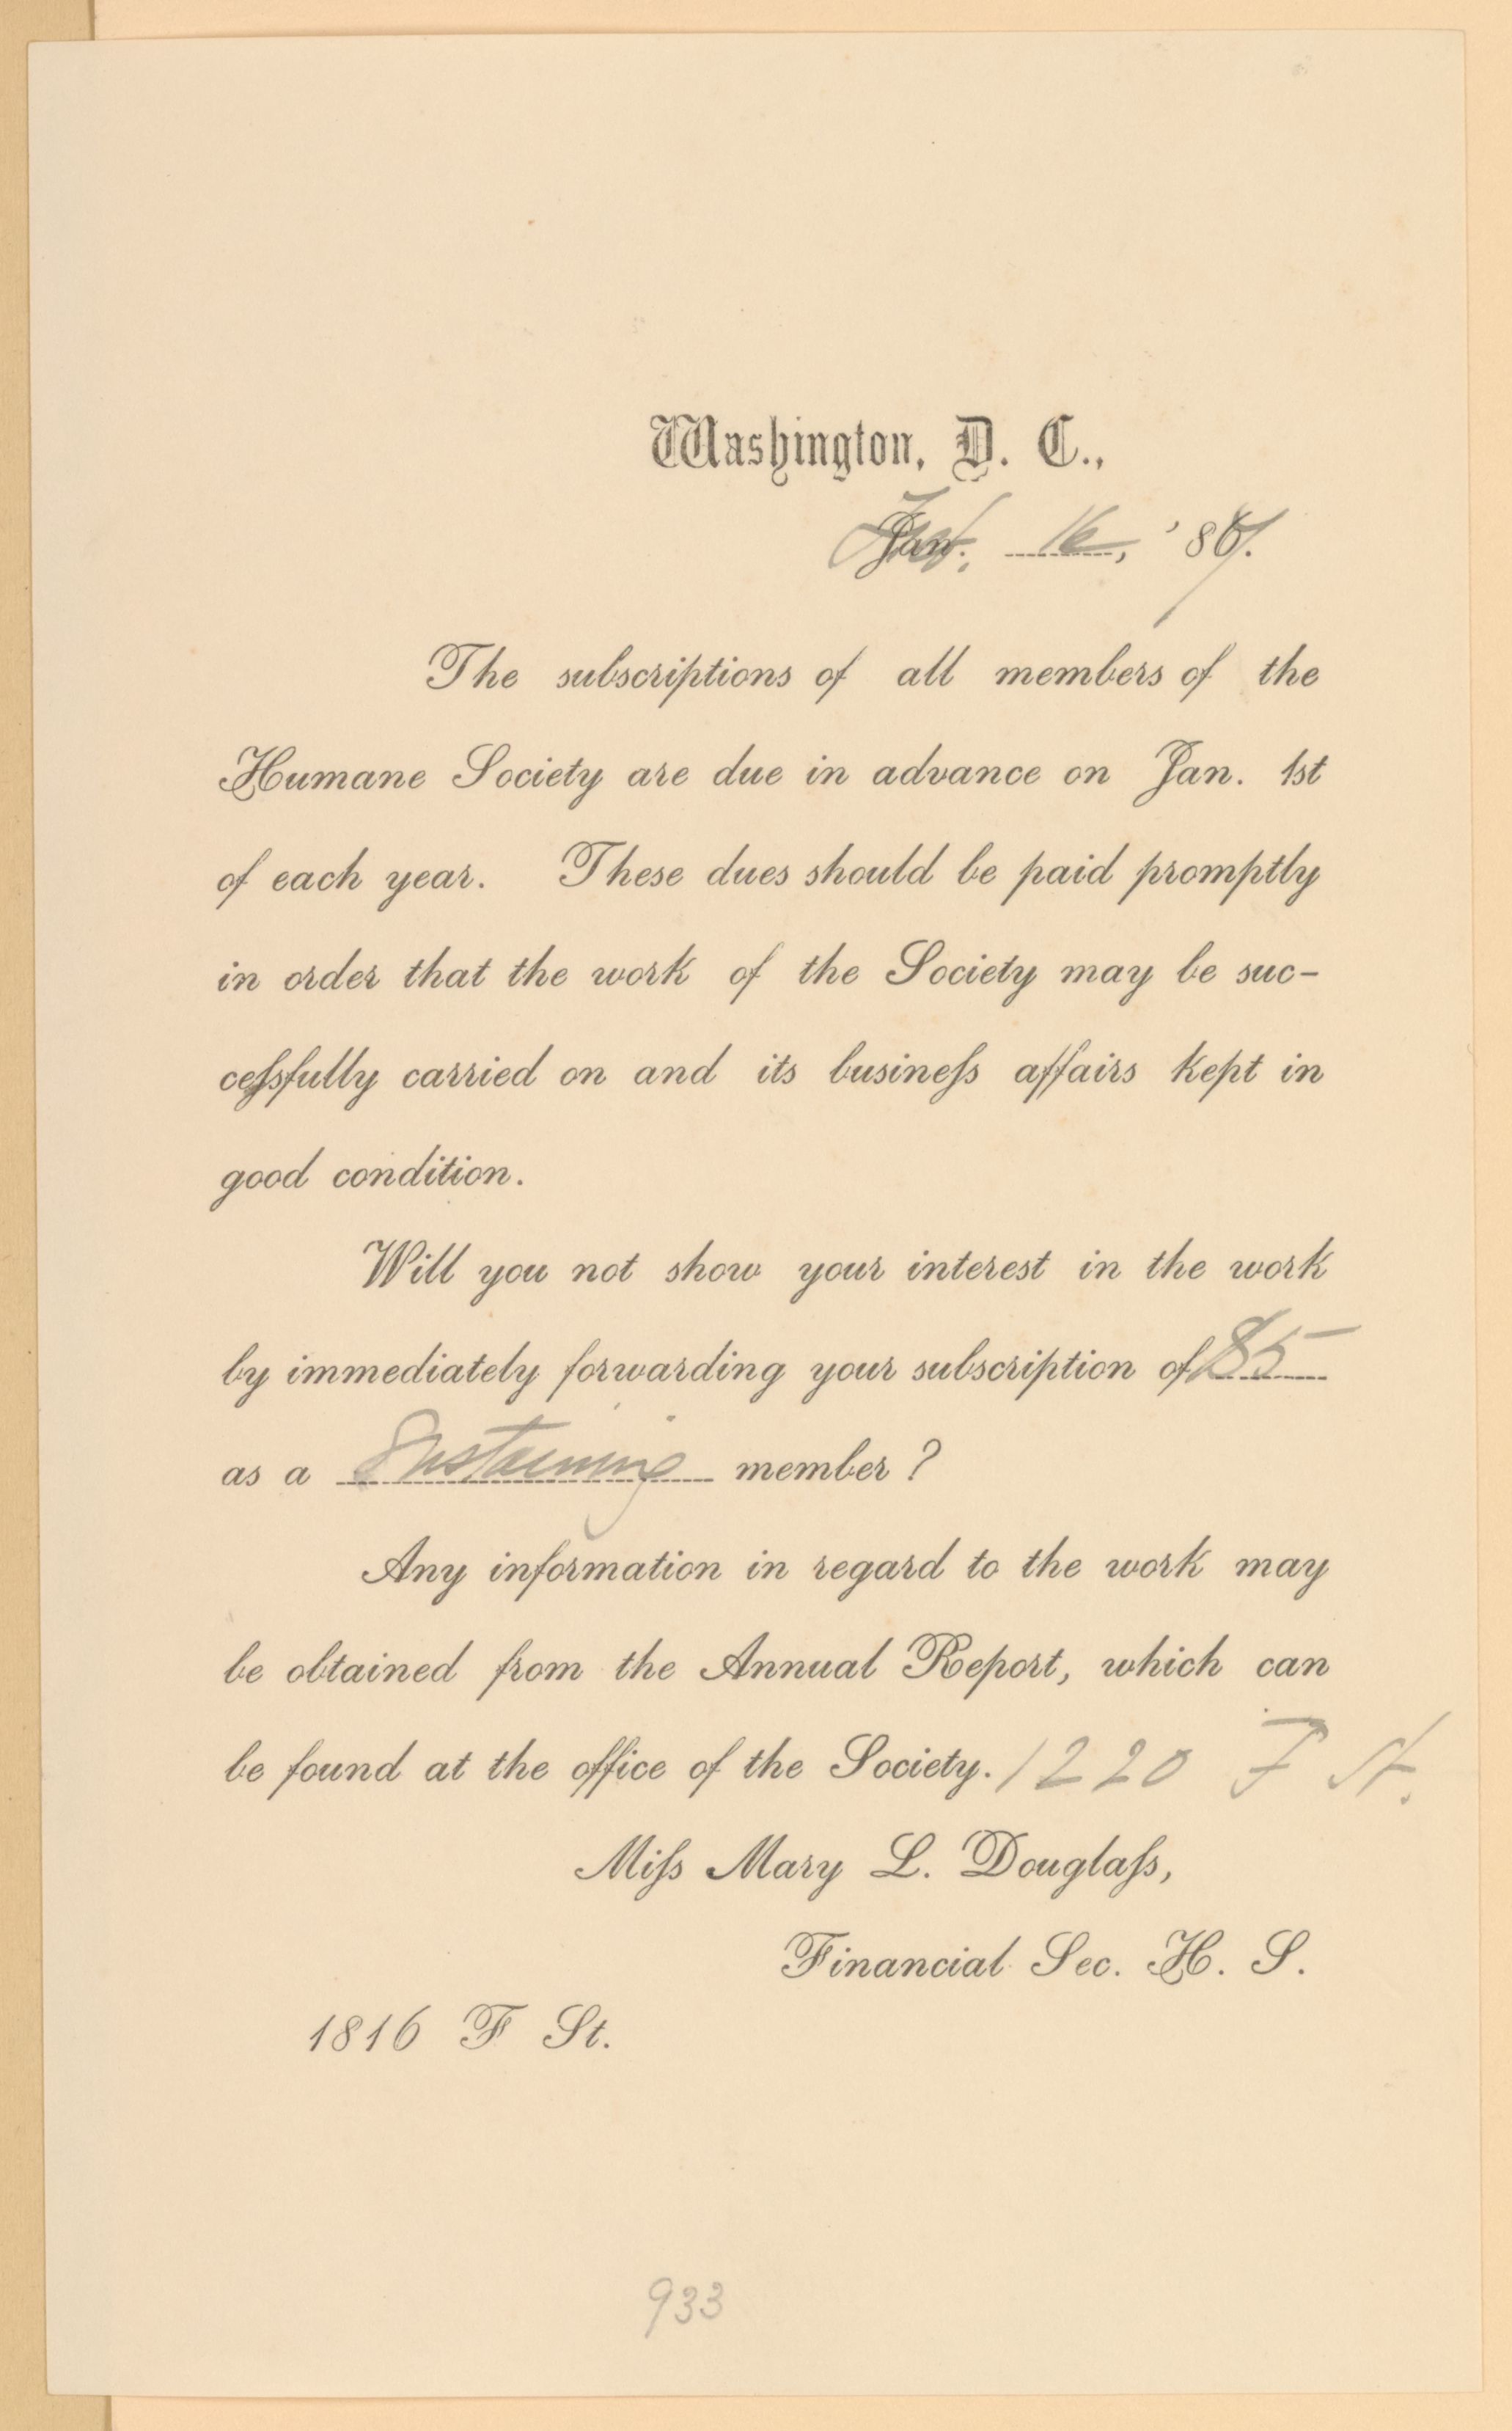 Washington, D. C.,
Feb. 16, '87.
The subscriptions of all members of the
Humane Society are due in advance on Jan. 1st
of each year. These dues should be paid promptly
in order that the work of the Society may be suc-
ceſsfully carried on and its busineſs affairs kept in
good condition.
Will you not show your interest in the work
by immediately forwarding your subscription of $5
as a Sustaining member?
Any information in regard to the work may
be obtained from the Annual Report, which can
be found at the office of the Society. 1220 F St.
Miſs Mary L. Douglaſs,
Financial Sec. H. S.
1816 F St.
933